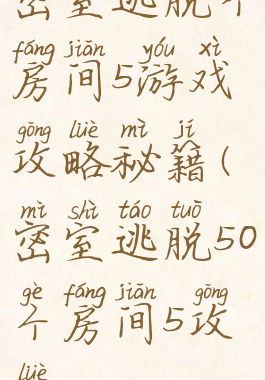 密室逃脱个
fáng jiān yóu xì
房间5游戏
gōng lüè mì jí
攻略秘籍(
mì shì táo tuō
密室逃脱50
gè fáng jiān gōng
个房间5攻
lüè